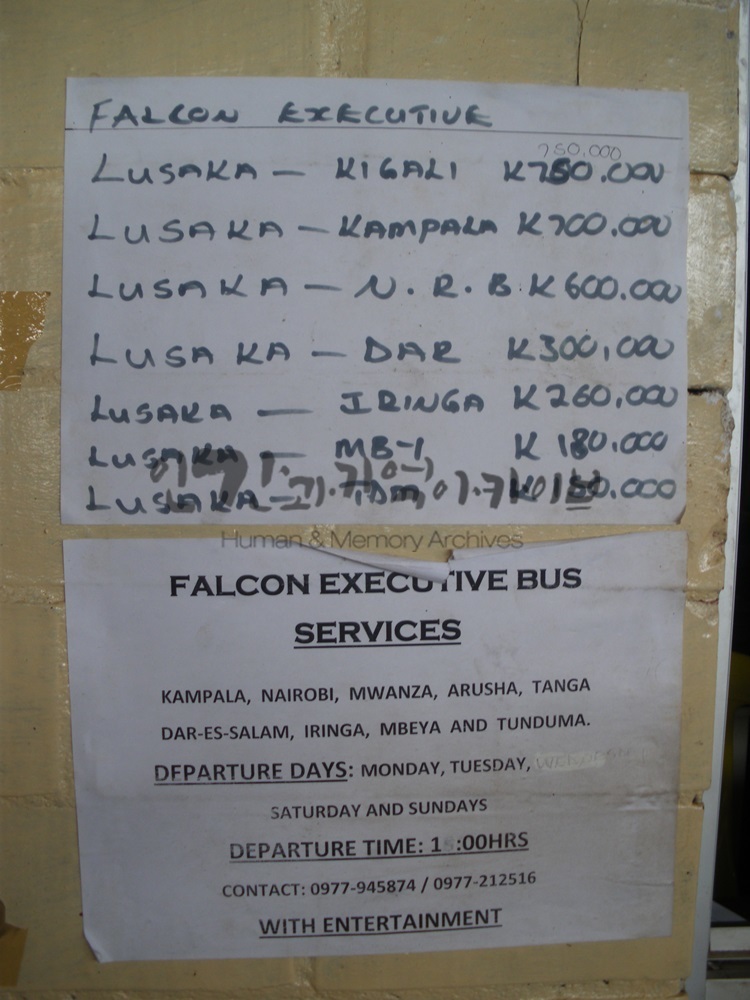 FALCON EXECUTIVE
750.000
LUSAKA — KIGALI K750.000
LUSAKA — KAMPALA K700.000
LUSAKA — N.R.B. K600.000
LUSAKA — DAR K300,000
LUSAKA — IRINGA K260,000
LUSAKA — MB-1 K 180.000
LUSAKA — TDM
Human & Memory Archives
FALCON EXECUTIVE BUS
SERVICES
KAMPALA, NAIROBI, MWANZA, ARUSHA, TANGA
DAR-ES-SALAM, IRINGA, MBEYA AND TUNDUMA.
DEPARTURE DAYS: MONDAY, TUESDAY,
SATURDAY AND SUNDAYS
DEPARTURE TIME:
CONTACT: 0977-945874 / 0977-212516
WITH ENTERTAINMENT